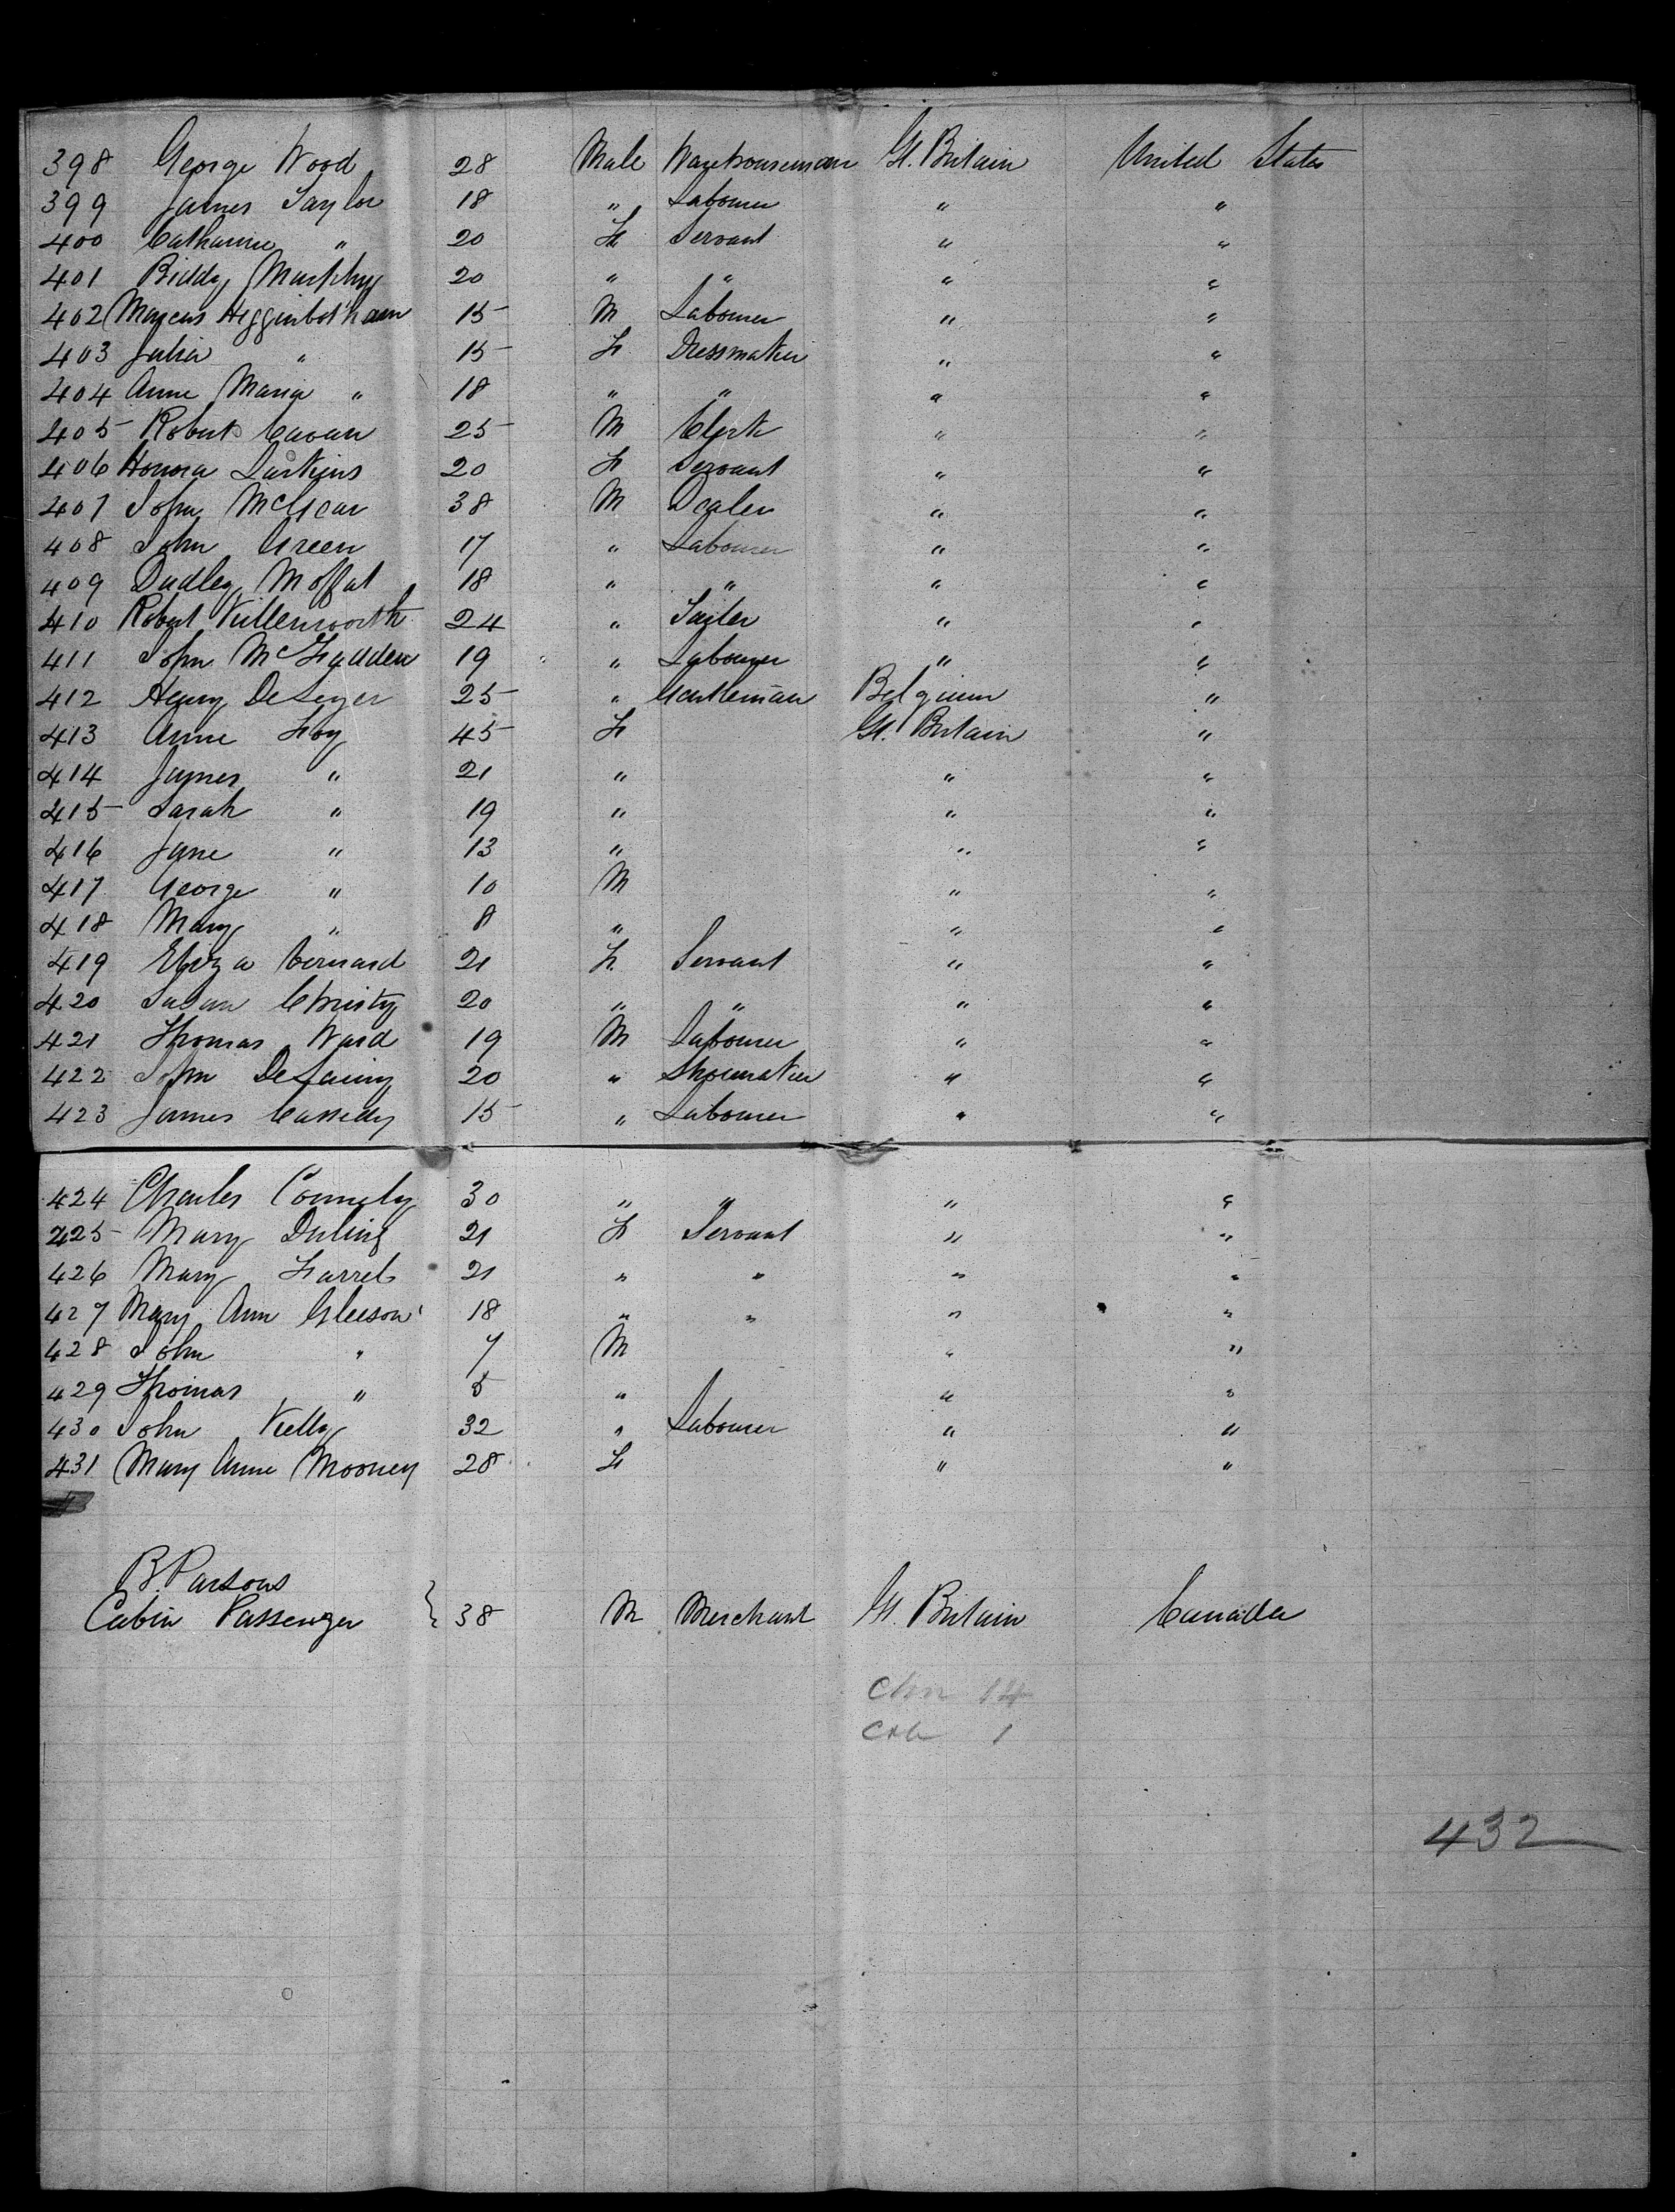 398 George Wood 28 Male Warehouseman Gt. Britain United States
399 James Taylor 18 " Labourer " "
400 Catharine " 20 F Servant " "
401 Biddy Murphy 20 " " " "
402 Marcus Higginbotham 15 M Labourer " "
403 Julia " 15 F Dressmaker " "
404 Anne Maria " 18 " " " "
405 Robert Cavan 25 M Clerk " "
406 Honora Larkins 20 F Servant " "
407 John McGear 38 M Dealer " "
408 John Green 17 " Labourer " "
409 Dudley Moffat 18 " " " "
410 Robert Killenworth 24 " Tailer " "
411 John McFadden 19 " Labourer " "
412 Henry DeSeyer 25 " Gentleman Belgium "
413 Anne Foy 45 F Gt. Britain "
414 James " 21 " " "
415 Sarah " 19 " " "
416 Jane " 13 " " "
417 George " 10 M " "
418 Mary " 8 " " "
419 Eliza 21 F. Servant " "
420 Susan Christy 20 " " " "
421 Thomas Ward 19 M Labourer " "
422 John 20 " Shoemaker " "
423 James Cassedy 15 " Labourer " "
424 Charles Connely 30 " " " "
425 Mary 21 F Servant " "
426 Mary Farrel 21 " " " "
427 Mary Ann Gleeson 18 " " " "
428 John " 7 M " "
429 Thomas " 5 " " "
430 John Kelly 32 " Labourer " "
431 Mary Anne Mooney 28 F " "
B. Parsons
Cabin Passenger } 38 M Merchant Gt. Britain Canada
Chn 14
1
432